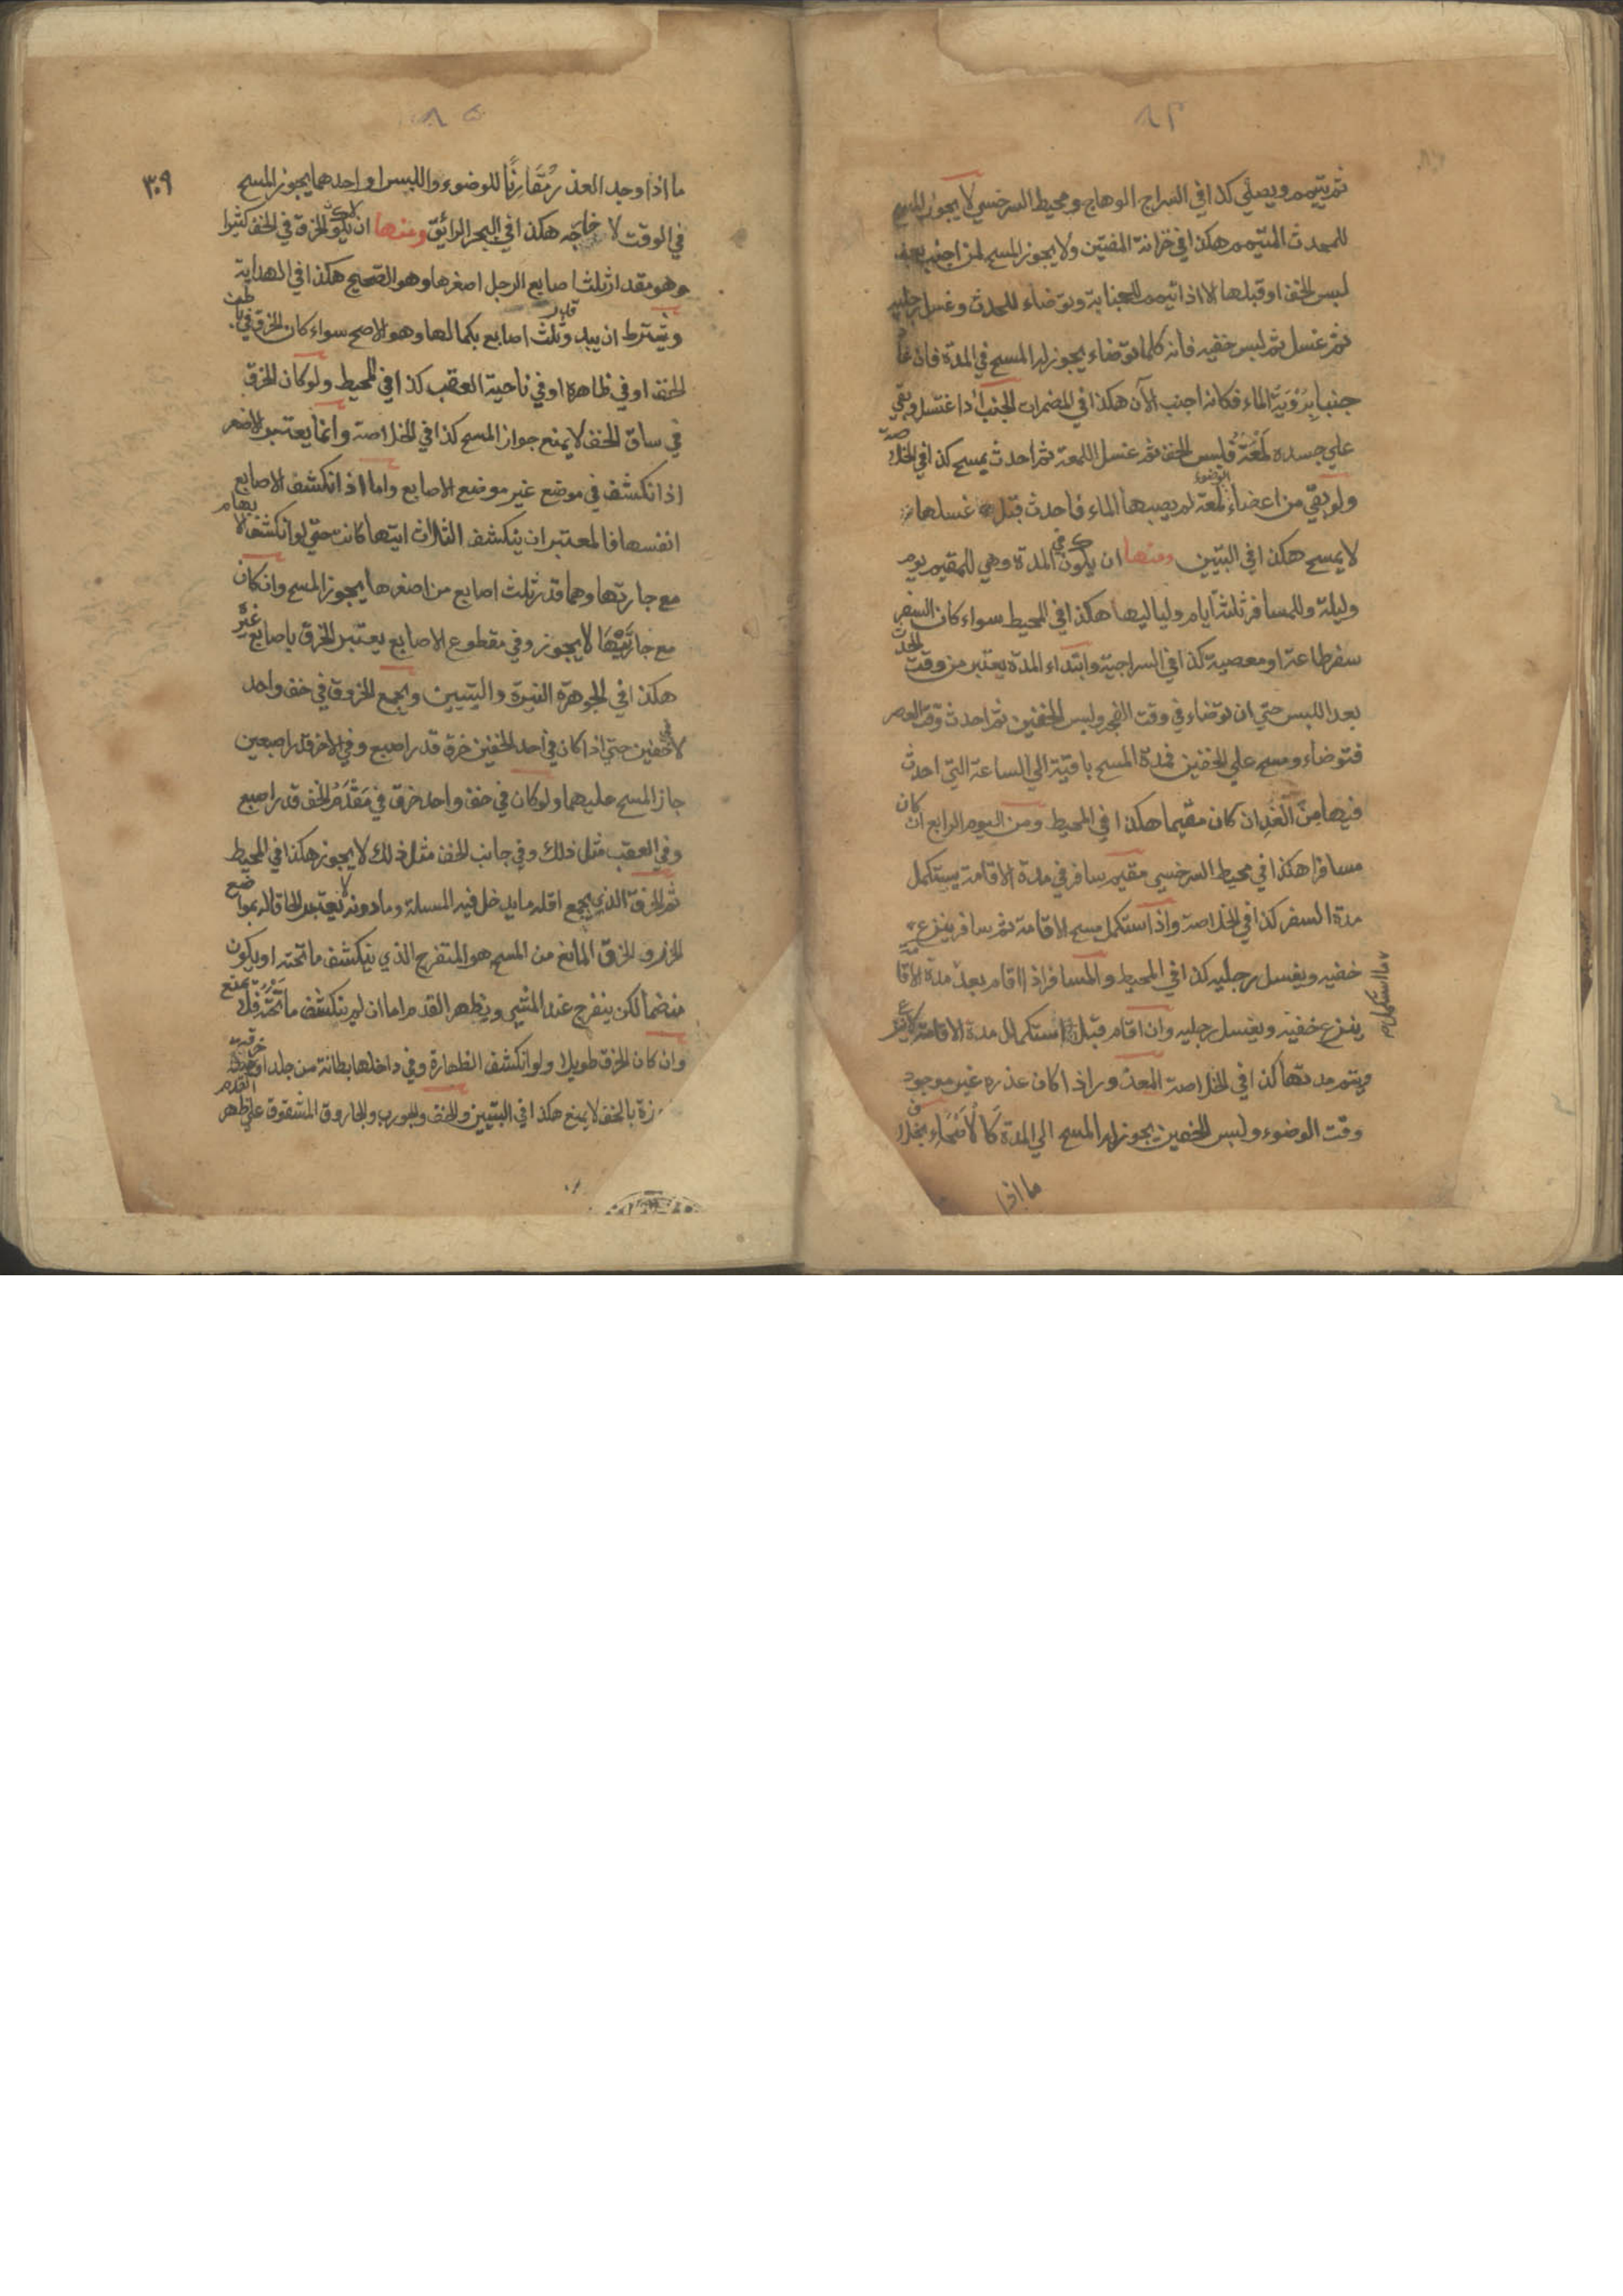 ٨٤
ثم يتيمم ويصلي كذا في السراج الوهاج ومحيط السرخسي لا يجوز المسح
للمحدث المتيمم هكذا في خزانة المفتين ولا يجوز المسح لمن اجنب بعد
لبس الخف او قبلها الا اذا تيمم للجنابة وتوضاء للحدث وغسل رجليه
ثم غسل ثم لبس خفيه فانه كلما توضاء يجوز له المسح في المدة فان عا
جنبا بِرُؤيَةِ الماء فكانه اجنب الآن هكذا في المضمرات الجنب اذا غتسل وبقي
علي جسده لُمْعَةٌ فلبس الخف ثم غسل اللمعة ثم احدث يمسح كذا في الخلاصة
ولو بقي من اعضاء الوضوء لمعة لم يصبها الماء فاحدث قبل غسلها
لا يمسح هكذا في التبيين ومنها ان يكون في المدة وهي للمقيم يوم
وليلة وللمسافر ثلثة ايام ولياليها هكذا في المحيط سواء كان السفر
سفر طاعة او معصية كذا في السراجية وابتداء المدة يعتبر من وقت الحدث
بعد اللبس حتي ان توضاء في وقت الفجر ولبس الخفين ثم احدث وقت العصر
فتوضاء ومسح علي الخفين فمدة المسح باقية الي الساعة التي احدث
فيها مِنَ الْغَدِ ان كان مقيما هكذا في المحيط ومن اليوم الرابع ان كان
مسافرا هكذا في محيط السرخسي مقيم سافر في مدة الاقامة يستكمل
مدة السفر كذا في الخلاصة واذا استكمل مسح الاقامة ثم سافر ينزع
خفيه ويغسل رجليه كذا في المحيط والمسافر اذا اقام بعد مدة الاقامة
ينزع خفيه ويغسل رجليه وان اقام قبل استكمال مدة الاقامة
ويتم مدتها كذا في الخلاصة المعذور اذا كان عذره غير موجود
وقت الوضوء ولبس الخفين يجوز له المسح الي المدة كَالْاَصِحَّاءِ بخلاف
ما اذا
٨٥
٣٠٩
ما اذا وجد العذر مُقَارِنًا للوضوء واللبس او احدهما يجوز المسح
في الوقت لا خارجه هكذا في البحر الرائق ومنها ان لا يكون الخرق في الخف كثيرا
وهو مقدار ثلث اصابع الرجل اصغرها وهو الصحيح هكذا في الهداية
ويشترط ان يبدو قدر ثلث اصابع بكمالها وهو الاصح سواء كان الخرق في باطن
الخف او في ظاهره او في ناحية العقب كذا في المحيط ولو كان الخرق
في ساق الخف لا يمنع جواز المسح كذا في الخلاصة وانما يعتبر الاصغر
اذا نكشف في موضع غير موضع الاصابع واما اذا انكشف الاصابع
انفسها فالمعتبر ان ينكشف الثلاث ايتها كانت حتي لو انكشف الابهام
مع جارتها وهما قدر ثلث اصابع من اصغرها يجوز المسح وان كان
مع جارَتَيْهَا لا يجوز وفي مقطوع الاصابع يعتبر الخرق باصابع غيره
هكذا في الجوهرة النيرة والتبيين ويجمع الخروق في خف واحد
لا في خفين حتي اذا كان في احد الخفين خرق قدر اصبع وفي الاخر قدر اصبعين
جاز المسح عليهما ولو كان في خف واحد خرق في مَقْدَمِ الخف قدر اصبع
وفي العقب مثل ذلك وفي جانب الخف مثل ذلك لا يجوز هكذا في المحيط
ثم الخرق الذي يجمع اقله ما يدخل فيه المسلة وما دونه لا يعتبر الحاقا له بمواضع
الخرز والخرق المانع من المسح هو المتفرج الذي ينكشف ما تحته او يكون
منضما لكن ينفرج عند المشي ويظهر القدم اما ان لم ينكشف ما تحته فلا يمنع
وان كان الخرق طويلا ولو انكشف الظهارة وفي داخلها بطانة من جلد او خرقة
رزة بالخف لا يمنع هكذا في التبيين والخف والجورب والجاروق المشقوق علي ظهر القدم